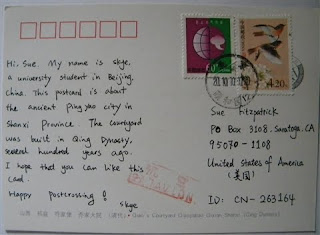 Hi, Sue. My name is skye,
a university student in Beijing,
China. This postcard is about
the ancient Pingyao city in
Shanxi Province. The courtyard
was built in Qing Dynasty,
several hundred years ago.
I hope that you can like this
Card.
Happy postcrossing!
skye
Sue Fitzpatrick
PO Box 3108, Saratoga, CA
95070-1108
United States of America
(美国)
ID: CN-263164
PAR AVION
4.20